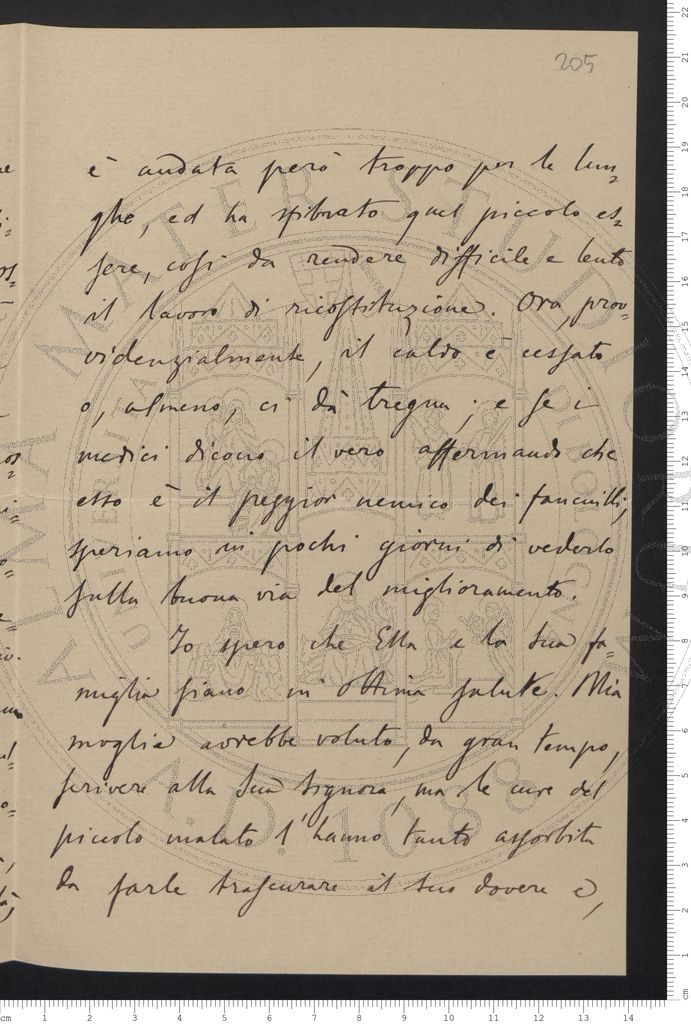 205
è andata però troppo per le lun=
ghe, ed ha sfibrato quel piccolo es=
sere, così da rendere difficile e lento
il lavoro di ricostituzione. Ora, prov=
videnzialmente, il caldo è cessato
o, almeno, ci dà tregua; e se i
medici dicono il vero affermando che
esso è il peggior nemico dei fanciulli,
speriamo in pochi giorni di vederlo
sulla buona via del miglioramento.
Io spero che Ella e la Sua fa=
miglia siano in ottima salute. Mia
moglie avrebbe voluto, da gran tempo,
scrivere alla Sua Signora, ma le cure del
piccolo malato l'hanno tanto assorbita
da farle trascurare il suo dovere e,